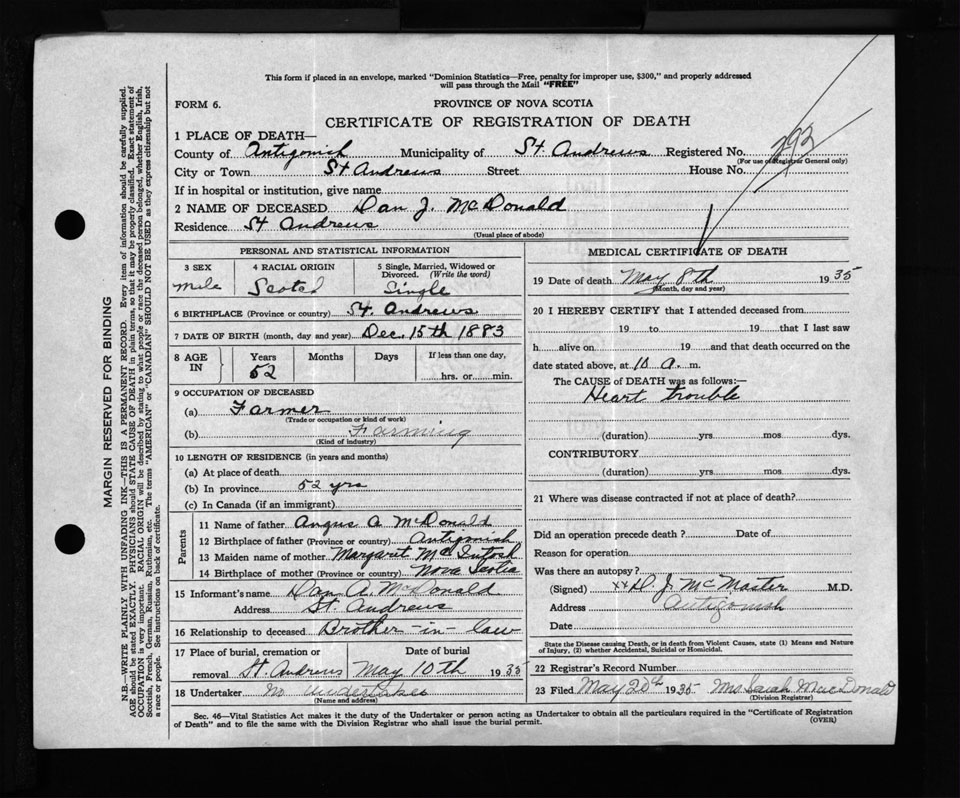 This form if placed in an envelope, marked "Dominion Statistics—Free, penalty for improper use, $300," and properly addressed
will pass through the Mail "FREE"
FORM 6.
PROVINCE OF NOVA SCOTIA
CERTIFICATE OF REGISTRATION OF DEATH
1 PLACE OF DEATH—
County of Antigonish Municipality of St. Andrews Registered No. 292
(For use of Registrar General only)
City or Town St Andrews Street House No.
If in hospital or institution, give name
2 NAME OF DECEASED Dan J. McDonald
Residence St Andrews
(Usual place of abode)
PERSONAL AND STATISTICAL INFORMATION
3 SEX
Male
4 RACIAL ORIGIN
Scotch
5 Single, Married, Widowed or
Divorced. (Write the word)
Single
6 BIRTHPLACE (Province or country) St. Andrews
7 DATE OF BIRTH (month, day and year) Dec. 15th 1883
8 AGE
IN
Years
52
Months
Days
If less than one day,
hrs. or min.
9 OCCUPATION OF DECEASED
(a) Farmer
(Trade or occupation or kind of work)
(b) Farming
(Kind of industry)
10 LENGTH OF RESIDENCE (in years and months)
(a) At place of death
(b) In province 52 yrs
(c) In Canada (if an immigrant)
Parents
11 Name of father Angus A McDonald
12 Birthplace of father (Province or country) Antigonish
13 Maiden name of mother Margaret McIntosh
14 Birthplace of mother (Province or country) Nova Scotia
15 Informant's name Dan A. McDonald
Address St. Andrews
16 Relationship to deceased Brother-in-law
17 Place of burial, cremation or removal St. Andrews
Date of burial
May 10th 1935
18 Undertaker No undertaker
(Name and address)
MEDICAL CERTIFICATE OF DEATH
19 Date of death May 8th 1935
(Month, day and year)
20 I HEREBY CERTIFY that I attended deceased from
19 to 19 that I last saw
h alive on 19 and that death occurred on the
date stated above, at 10 a. m.
The CAUSE of DEATH was as follows:—
Heart trouble
(duration) yrs. mos. dys.
CONTRIBUTORY
(duration) yrs. mos. dys.
21 Where was disease contracted if not at place of death?
Did an operation precede death? Date of
Reason for operation
Was there an autopsy?
(Signed) xx D. J. McMaster M.D.
Address Antigonish
Date
State the Disease causing Death, or in death from Violent Causes, state (1) Means and Nature
of Injury, (2) whether Accidental, Suicidal or Homicidal.
22 Registrar's Record Number
23 Filed May 20th 1935 Mrs. Sarah MacDonald
(Division Registrar)
Sec. 46—Vital Statistics Act makes it the duty of the Undertaker or person acting as Undertaker to obtain all the particulars required in the "Certificate of Registration
of Death" and to file the same with the Division Registrar who shall issue the burial permit.
(OVER)
MARGIN RESERVED FOR BINDING
N.B.—WRITE PLAINLY WITH UNFADING INK—THIS IS A PERMANENT RECORD. Every item of information should be carefully supplied.
AGE should be stated EXACTLY. PHYSICIANS should STATE CAUSE OF DEATH in plain terms, so that it may be properly classified. Exact statement of
OCCUPATION is very important. RACIAL ORIGIN will be described by stating to what people or race the deceased person belonged, whether English, Irish,
Scottish, French, German, Russian, Ruthenian, etc. The terms "AMERICAN" or "CANADIAN" SHOULD NOT BE USED as they express citizenship but not
a race or people. See instructions on back of certificate.